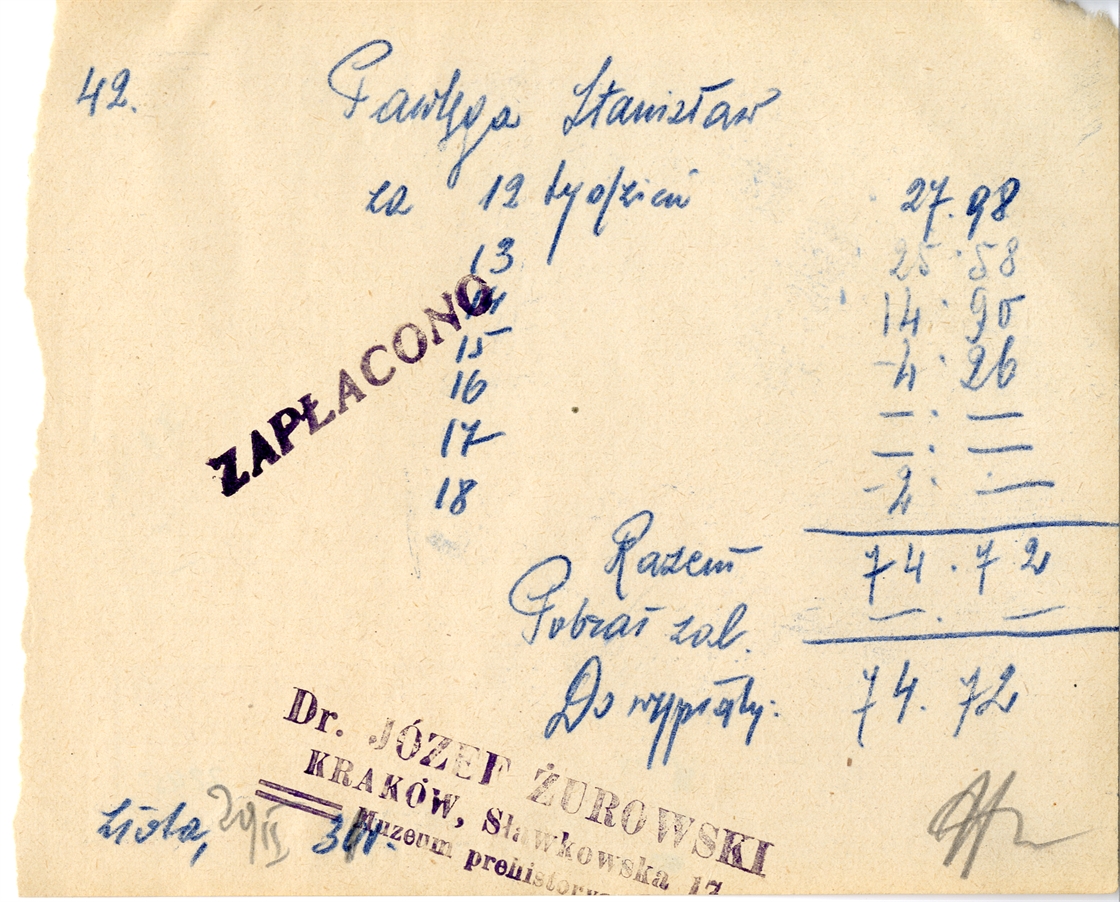 42. Stanisław
za 12 tydzień 27.98
13 25.58
14 14.90
15 4.26
16 — . —
17 — . —
18 2. —
ZAPŁACONO
Razem 74.72
Pobrał zal. — . —
Do wypłaty: 74.72
Dr. JÓZEF ŻUROWSKI
KRAKÓW, Sławkowska 17
Muzeum
Złota,